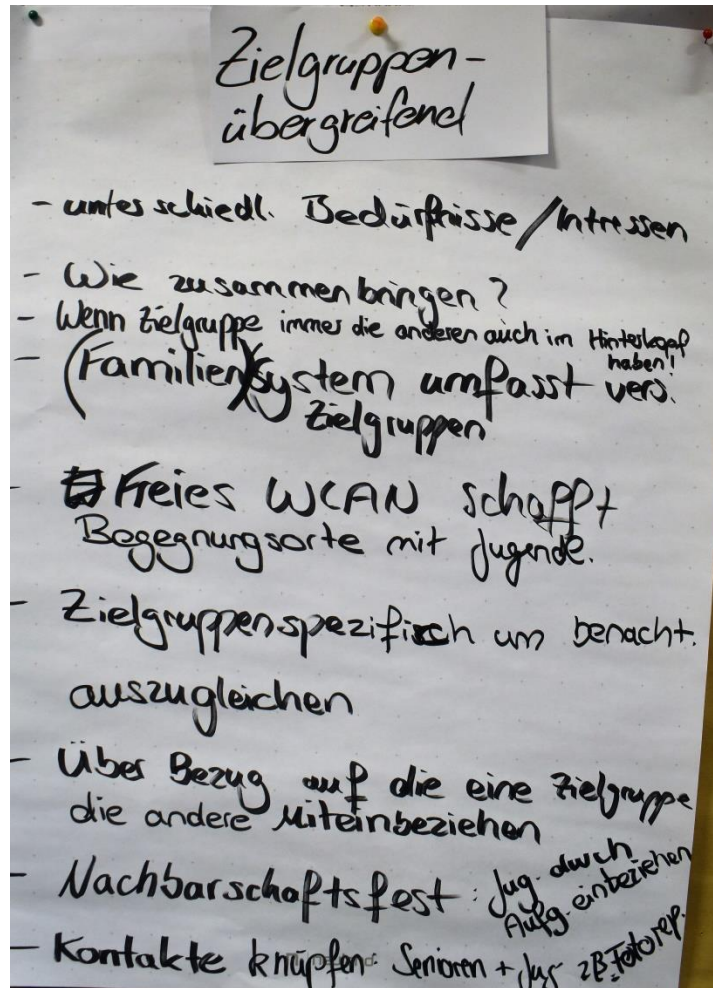 Zielgruppen-
übergreifend
- unterschiedl. Bedürfnisse/Intressen
- Wie zusammenbringen?
- Wenn Zielgruppe immer die anderen auch im Hinterkopf
haben!
- (Familien)(system umfasst vers.
Zielgruppen
- Freies WLAN schafft
Begegnungsorte mit Jugende.
- Zielgruppenspezifisch um benacht.
auszugleichen
- Über Bezug auf die eine Zielgruppe
die andere Miteinbeziehen
- Nachbarschaftsfest: Jug. durch
Aufg. einbeziehen
- Kontakte knüpfen Senioren + Jug zB. Fotorep.